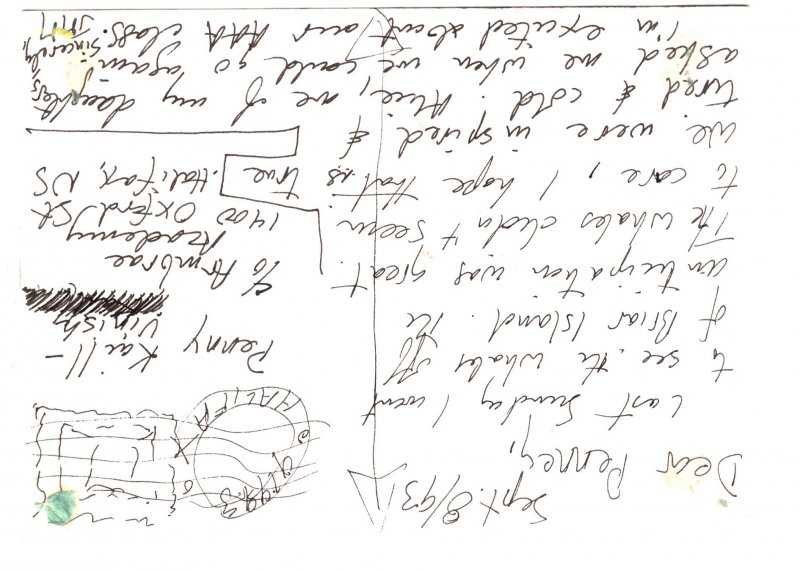 Sept. 8/93
Dear Penney,
Last Sunday I went
to see the whales off
of Briar Island. The
anticipation was great.
The whales didn't seem
to care, I hope that is true.
We were inspired &
tired & cold. Alice, one of my daughters,
asked me when we could go again.
I'm excited about our AAA class. Sincerely,
HALIFAX
1993
Penny Kaill-
Vinish
c/o Armbrae
Academy
1400 Oxford St
Halifax, NS